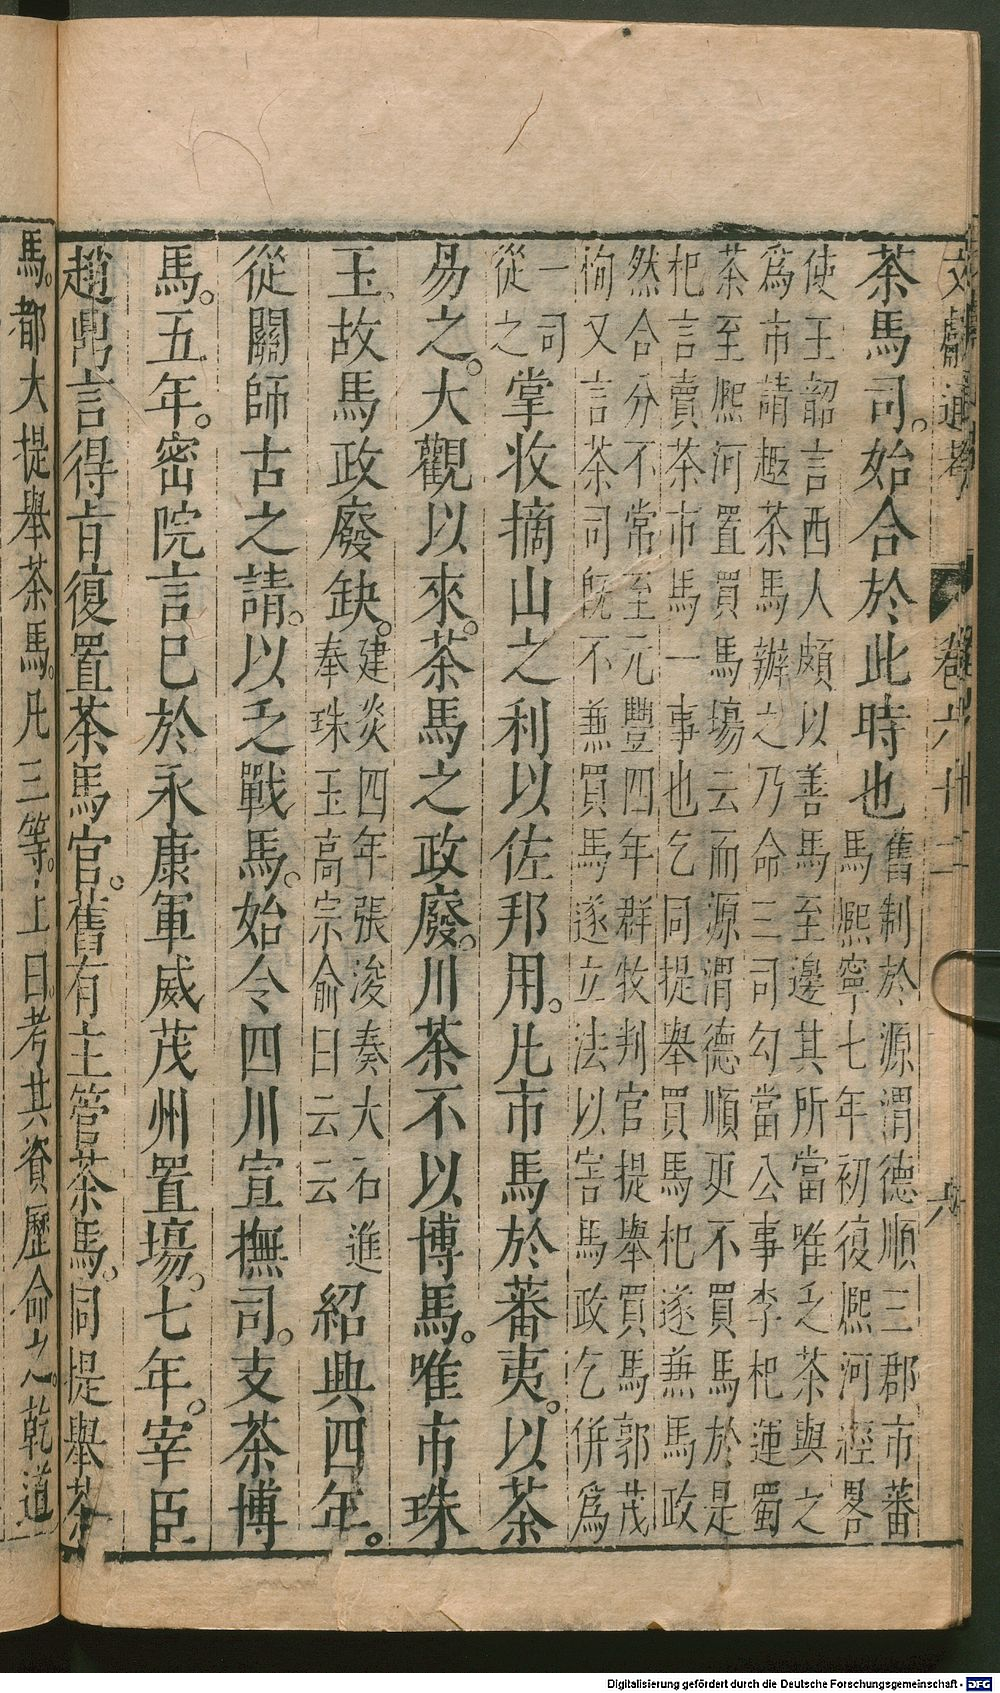 文獻通考 卷六十二 六
茶馬司。始合於此時也
舊制於源渭德順三郡市蕃
馬熙寧七年初復熙河經畧
使王韶言西人頗以善馬至邊其所當唯乏茶與之
為市請趣茶馬辦之乃命三司勾當公事李杞運蜀
茶至熙河置買馬塲云而源渭德順更不買馬於是
杞言賣茶市馬一事也乞同提舉買馬杞遂兼馬政
然合分不常至元豐四年群牧判官提舉買馬郭茂
恂又言茶司既不兼買馬遂立法以害馬政乞併為
一司
從之
掌收摘山之利以佐邦用。凡市馬於蕃夷。以茶
易之。大觀以來。茶馬之政廢。川茶不以博馬。唯市珠
玉。故馬政廢缺。
建炎四年張浚奏大石進
奉珠玉高宗俞曰云云
紹興四年。
從關師古之請。以乏戰馬。始令四川宣撫司。支茶博
馬。五年。密院言已於永康軍威茂州置塲。七年。宰臣
趙鼎言得旨復置茶馬官。舊有主管茶馬。同提舉茶
馬。都大提舉茶馬。凡三等。上曰。考其資歷命之。乾道
Digitalisierung gefördert durch die Deutsche Forschungsgemeinschaft - DFG